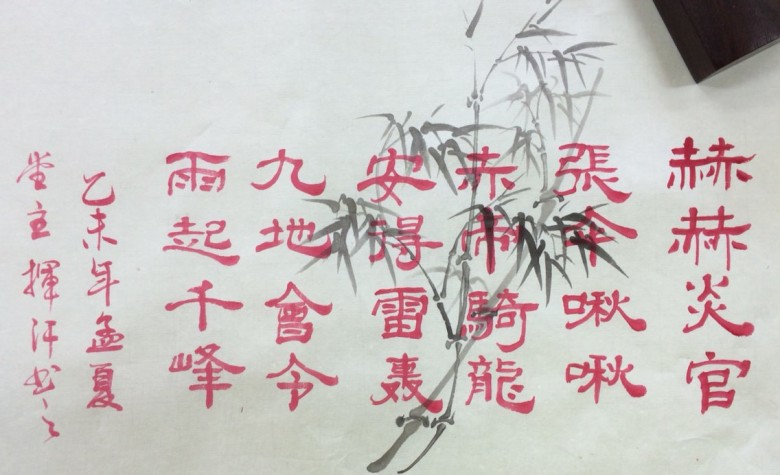 赫赫炎官
張伞啾啾
赤帝騎龍
安得雷轰
九地會令
雨起千峰
乙未年孟夏
堂主揮汗书之